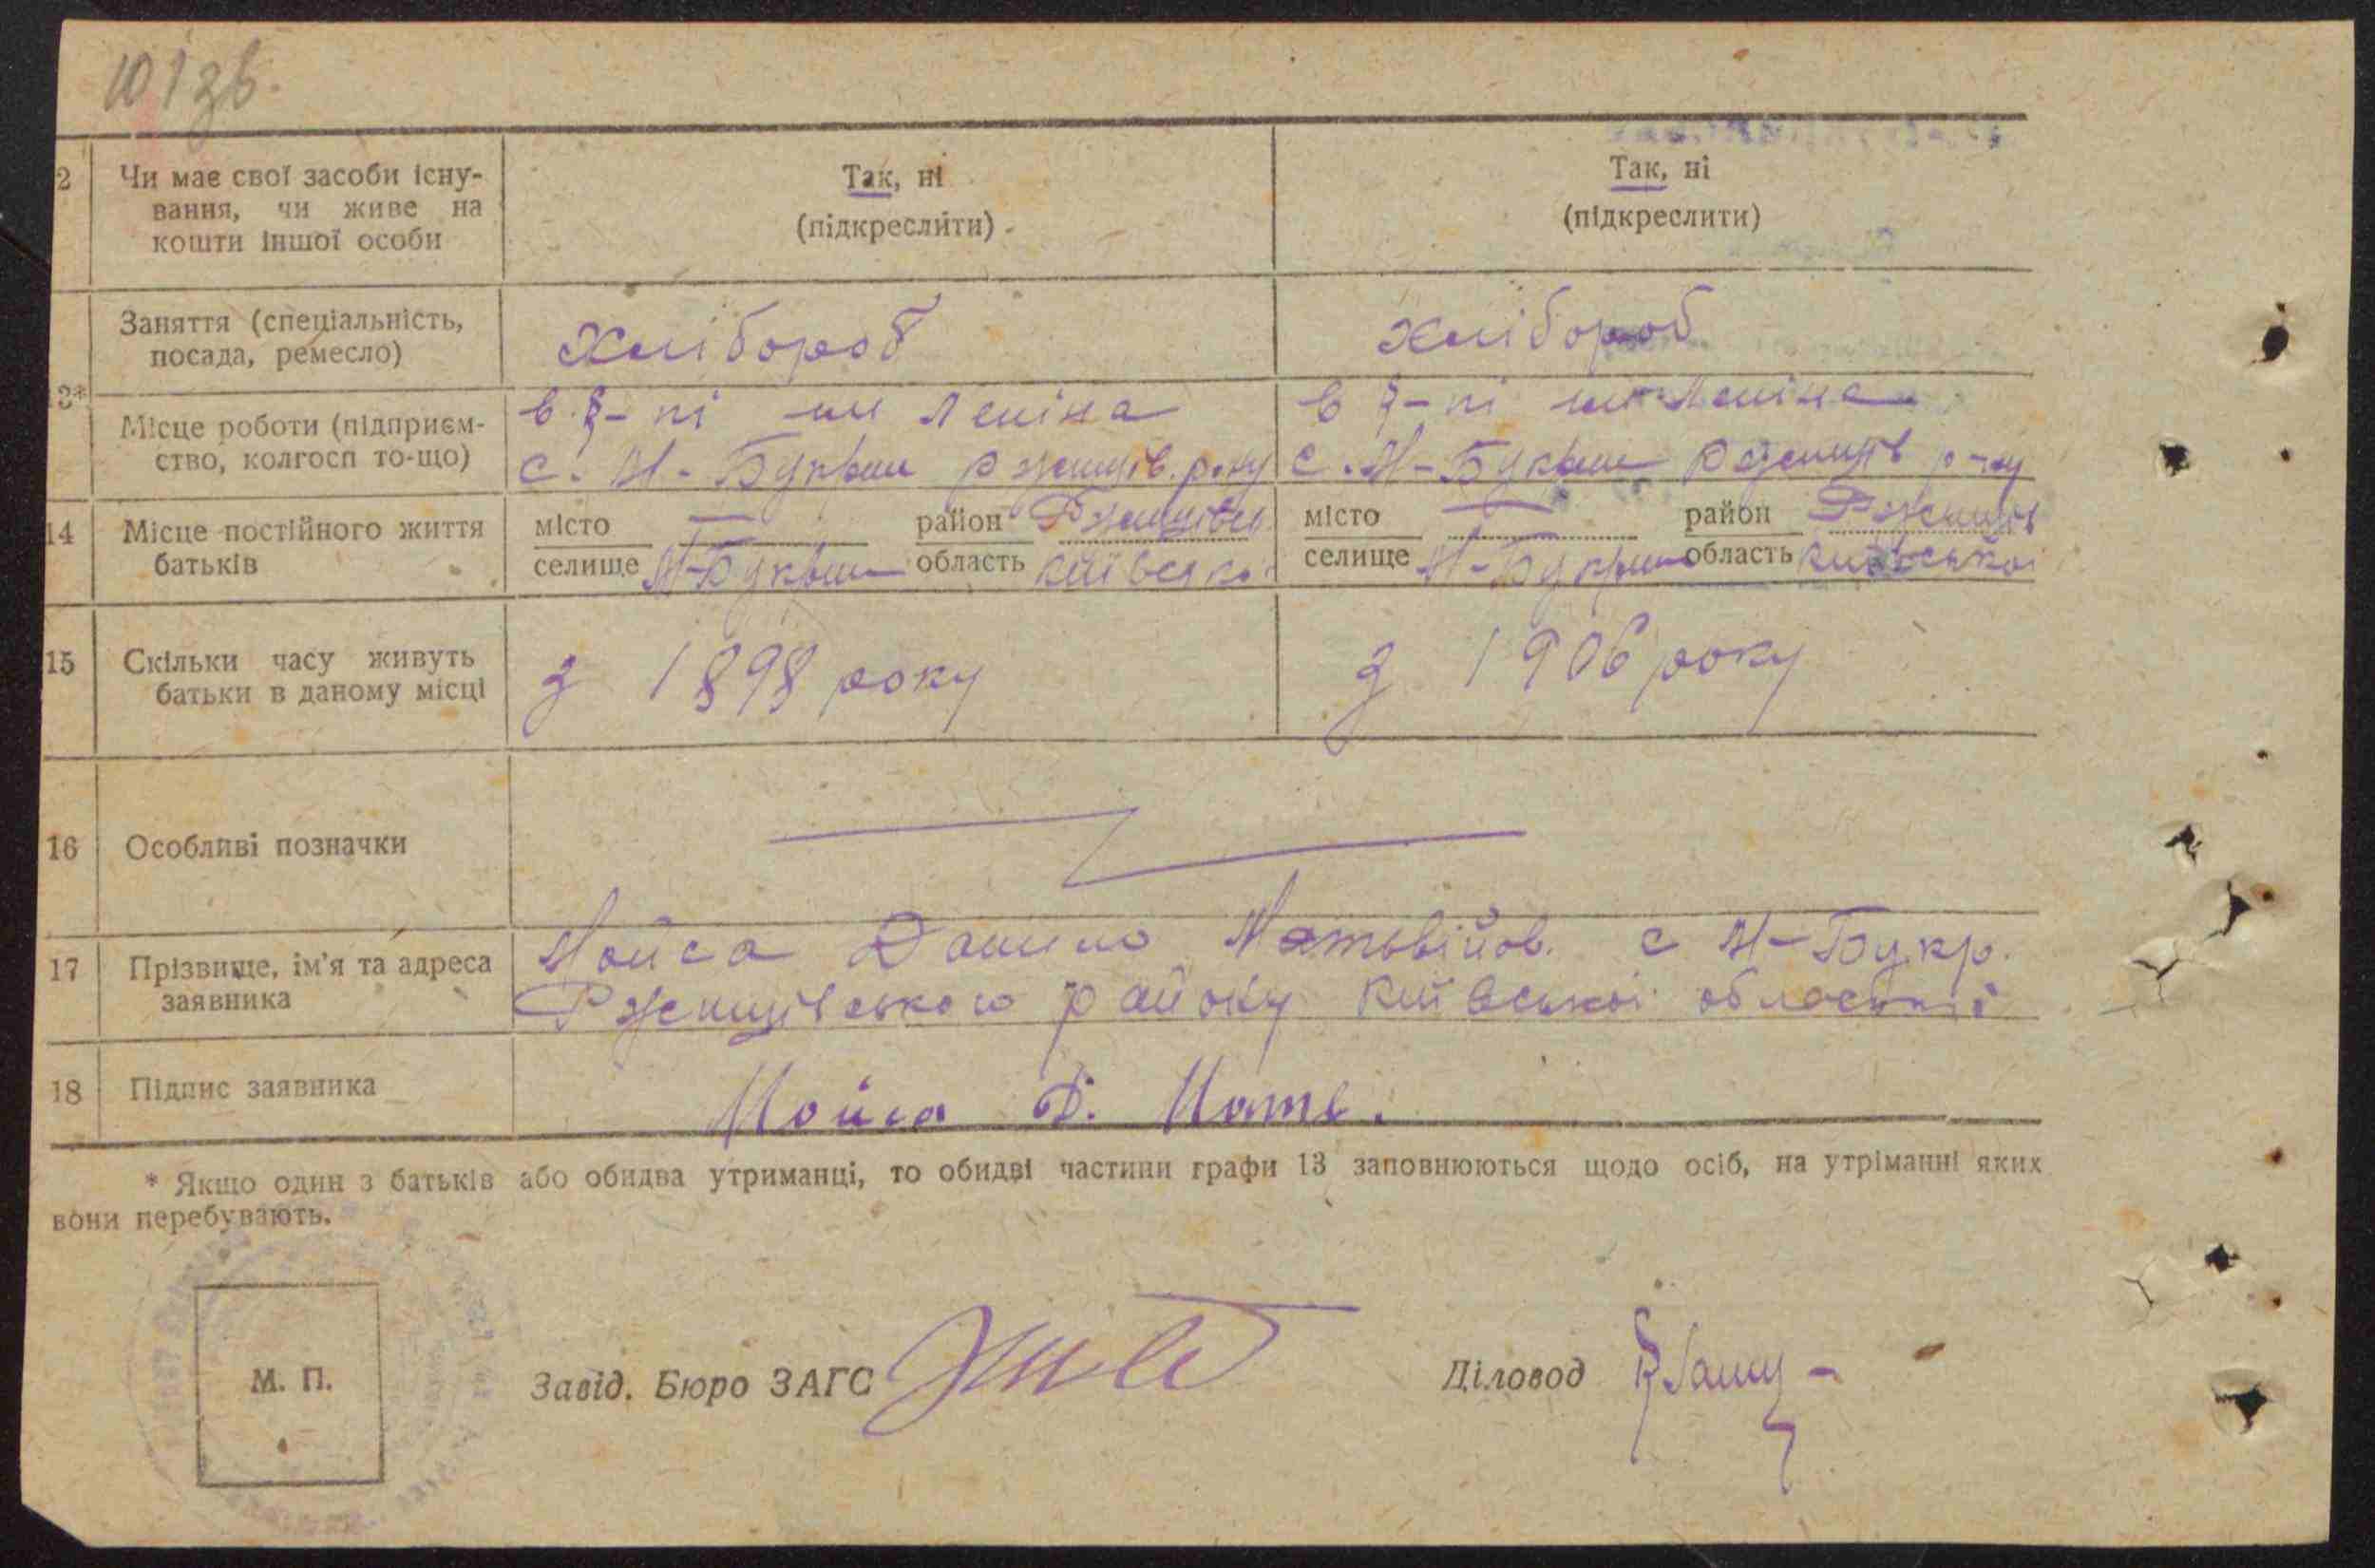 101зв.
2 Чи має свої засоби існу-
вання, чи живе на
кошти іншої особи
Так, ні
(підкреслити)
Так, ні
(підкреслити)
Заняття (спеціальність,
посада, ремесло)
хлібороб
хлібороб
3*
Місце роботи (підприєм-
ство, колгосп то-що)
в г-пі ім Леніна
с. М-Букрин Ржищів. р-ну
в г-пі ім Леніна
с. М-Букрин Ржищів р-ну
14 Місце постійного життя
батьків
місто — район Ржищівськ
селище М-Букрин область Київської
місто — район Ржищів
селище М-Букрин область Київської
15 Скільки часу живуть
батьки в даному місці
з 1898 року
з 1906 року
16 Особливі позначки
17 Прізвище, ім'я та адреса
заявника
Мойса Данило Матвійов. с М-Букр.
Ржищівського району Київської області
18 Підпис заявника
Мойса Д. Матв.
* Якщо один з батьків або обидва утриманці, то обидві частини графи 13 заповнюються щодо осіб, на утріманні яких
вони перебувають.
М. П.
Завід. Бюро ЗАГС
Діловод